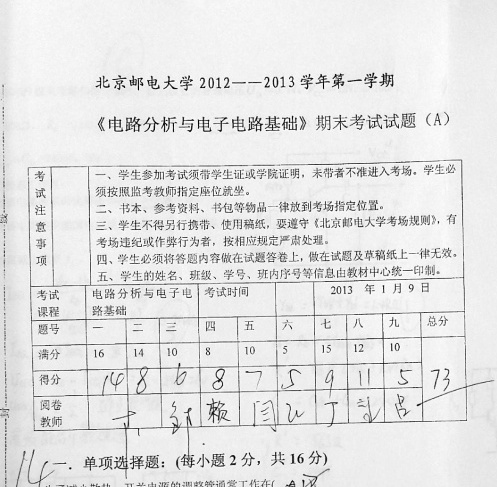 北京邮电大学 2012——2013 学年第一学期
《电路分析与电子电路基础》期末考试试题（A）
考试注意事项
一、学生参加考试须带学生证或学院证明，未带者不准进入考场。学生必
须按照监考教师指定座位就坐。
二、书本、参考资料、书包等物品一律放到考场指定位置。
三、学生不得另行携带、使用稿纸，要遵守《北京邮电大学考场规则》，有
考场违纪或作弊行为者，按相应规定严肃处理。
四、学生必须将答题内容做在试题答卷上，做在试题及草稿纸上一律无效。
五、学生的姓名、班级、学号、班内序号等信息由教材中心统一印制。
考试课程 电路分析与电子电路基础 考试时间 2013 年 1 月 9 日
题号 一 二 三 四 五 六 七 八 九 总分
满分 16 14 10 8 10 5 15 12 10
得分 14 8 6 8 7 5 9 11 5 73
阅卷教师 赖 闫 丁 吕
14
一. 单项选择题：(每小题 2 分，共 16 分)